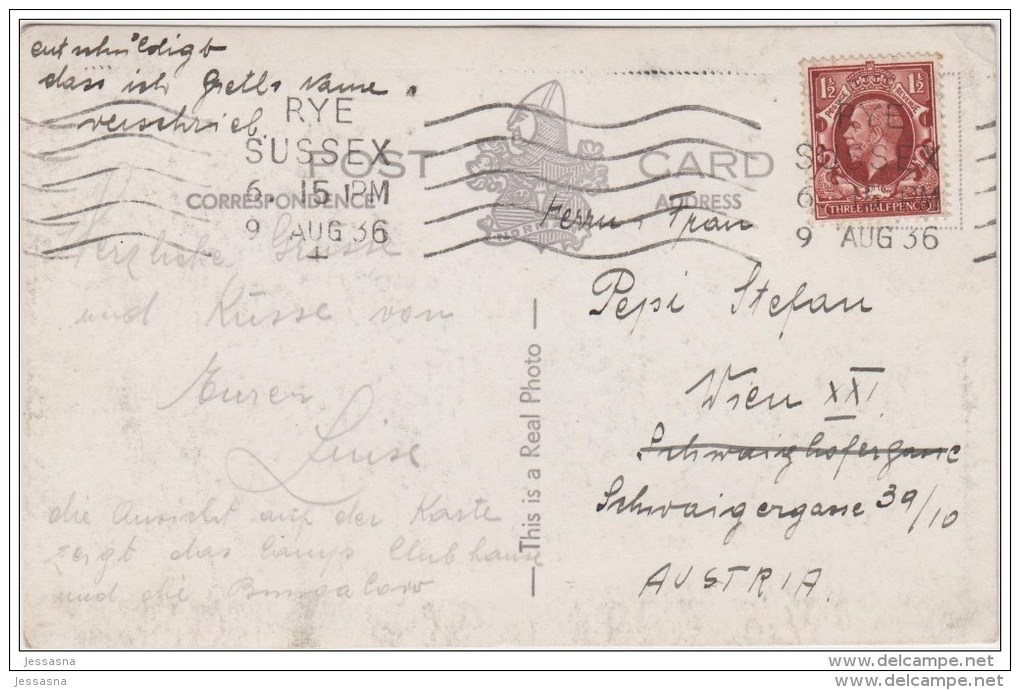 entschüldigt
dass ich Gretls Name
verschrieb.
RYE
SUSSEX
6. 15 PM
9 AUG 36
POST CARD
CORRESPONDENCE
ADDRESS
NORMAN
1½ 1½
POSTAGE REVENUE
THREE HALFPENCE
RYE
SUSSEX
6. 15 PM
9 AUG 36
Herzliche Grüsse
und Küsse von
Eurer
Luise
die Ansicht auf der Karte
zeigt das Camps Clubhause
und die Bungalow
This is a Real Photo
Herrn u Frau
Pepi Stefan
Wien XXI.
Schwaighofergasse
Schwaigergasse 39/10
AUSTRIA.
Jessasna
Jessasna
www.delcampe.net
www.delcampe.net